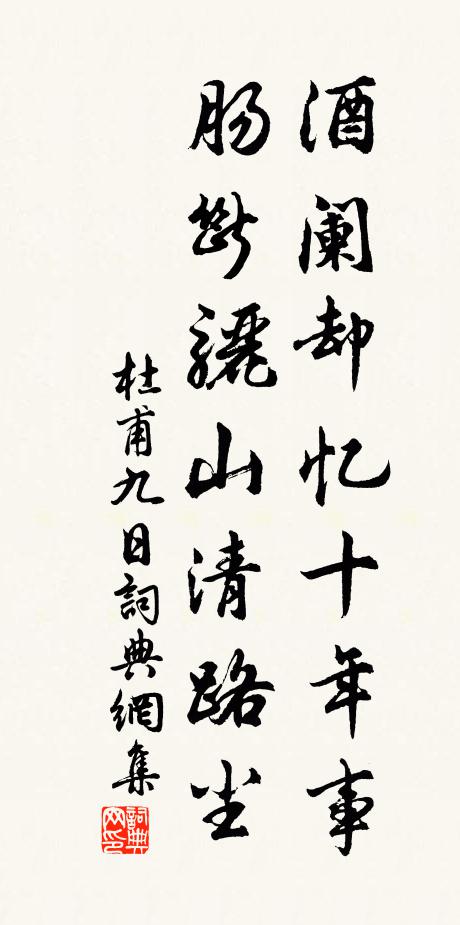 酒阑却忆十年事
肠断骊山清路尘
杜甫九日詞典網集
詞典网印